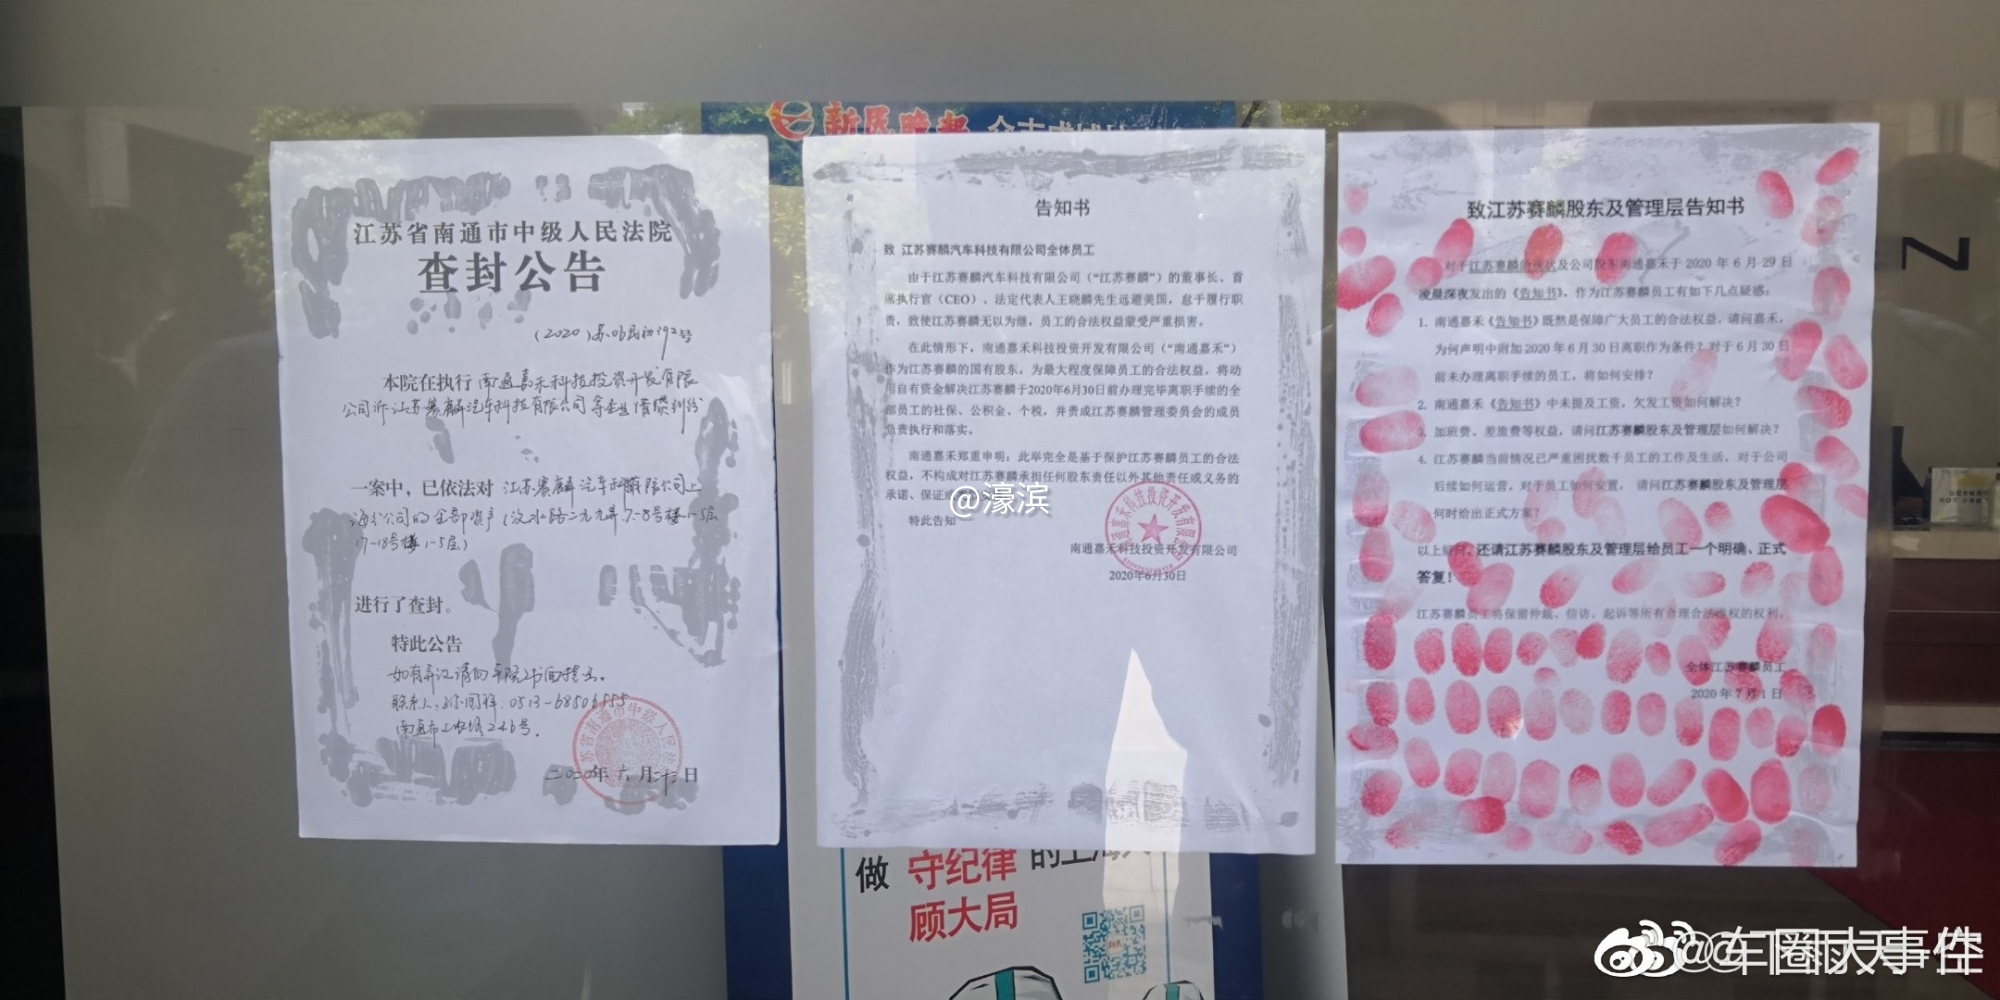 江苏省南通市中级人民法院
查封公告
(2020)苏06民初192号
本院在执行 南通嘉禾科技投资开发有限
公司诉江苏赛麟汽车科技有限公司等企业借贷纠纷
一案中，已依法对 江苏赛麟汽车科技有限公司上
海分公司的全部资产(汶水路二九九弄7-8号楼1-5层
17-18号楼1-5层)
进行了查封。
特此公告
如有异议请向本院书面提出。
0513-68506555
南通市工农路246号。
二〇二〇年六月 日
告知书
致 江苏赛麟汽车科技有限公司全体员工
由于江苏赛麟汽车科技有限公司（“江苏赛麟”）的董事长、首
席执行官（CEO）、法定代表人王晓麟先生远避美国，怠于履行职
责，致使江苏赛麟无以为继，员工的合法权益蒙受严重损害。
在此情形下，南通嘉禾科技投资开发有限公司（“南通嘉禾”）
作为江苏赛麟的国有股东，为最大程度保障员工的合法权益，将动
用自有资金解决江苏赛麟于2020年6月30日前办理完毕离职手续的全
部员工的社保、公积金、个税，并责成江苏赛麟管理委员会的成员
负责执行和落实。
南通嘉禾郑重申明：此举完全是基于保护江苏赛麟员工的合法
权益，不构成对江苏赛麟承担任何股东责任以外其他责任或义务的
承诺、保证
特此告知
南通嘉禾科技投资开发有限公司
2020年6月30日
致江苏赛麟股东及管理层告知书
对于江苏赛麟的现状及公司股东南通嘉禾于 2020 年 6 月 29 日
凌晨深夜发出的《告知书》，作为江苏赛麟员工有如下几点疑惑：
1. 南通嘉禾《告知书》既然是保障广大员工的合法权益，请问嘉禾，
为何声明中附加 2020 年 6 月 30 日离职作为条件？对于 6 月 30 日
前未办理离职手续的员工，将如何安排？
2. 南通嘉禾《告知书》中未提及工资，欠发工资如何解决？
3. 加班费、差旅费等权益，请问江苏赛麟股东及管理层如何解决？
4. 江苏赛麟当前情况已严重困扰数千员工的工作及生活，对于公司
后续如何运营，对于员工如何安置，请问江苏赛麟股东及管理层
何时给出正式方案？
以上疑问，还请江苏赛麟股东及管理层给员工一个明确、正式
答复！
江苏赛麟员工将保留仲裁、信访、起诉等所有合理合法维权的权利。
全体江苏赛麟员工
2020 年 7 月 1 日
@濠滨
新民晚报
做 守纪律 的上海人
顾大局
N
@车圈大事件